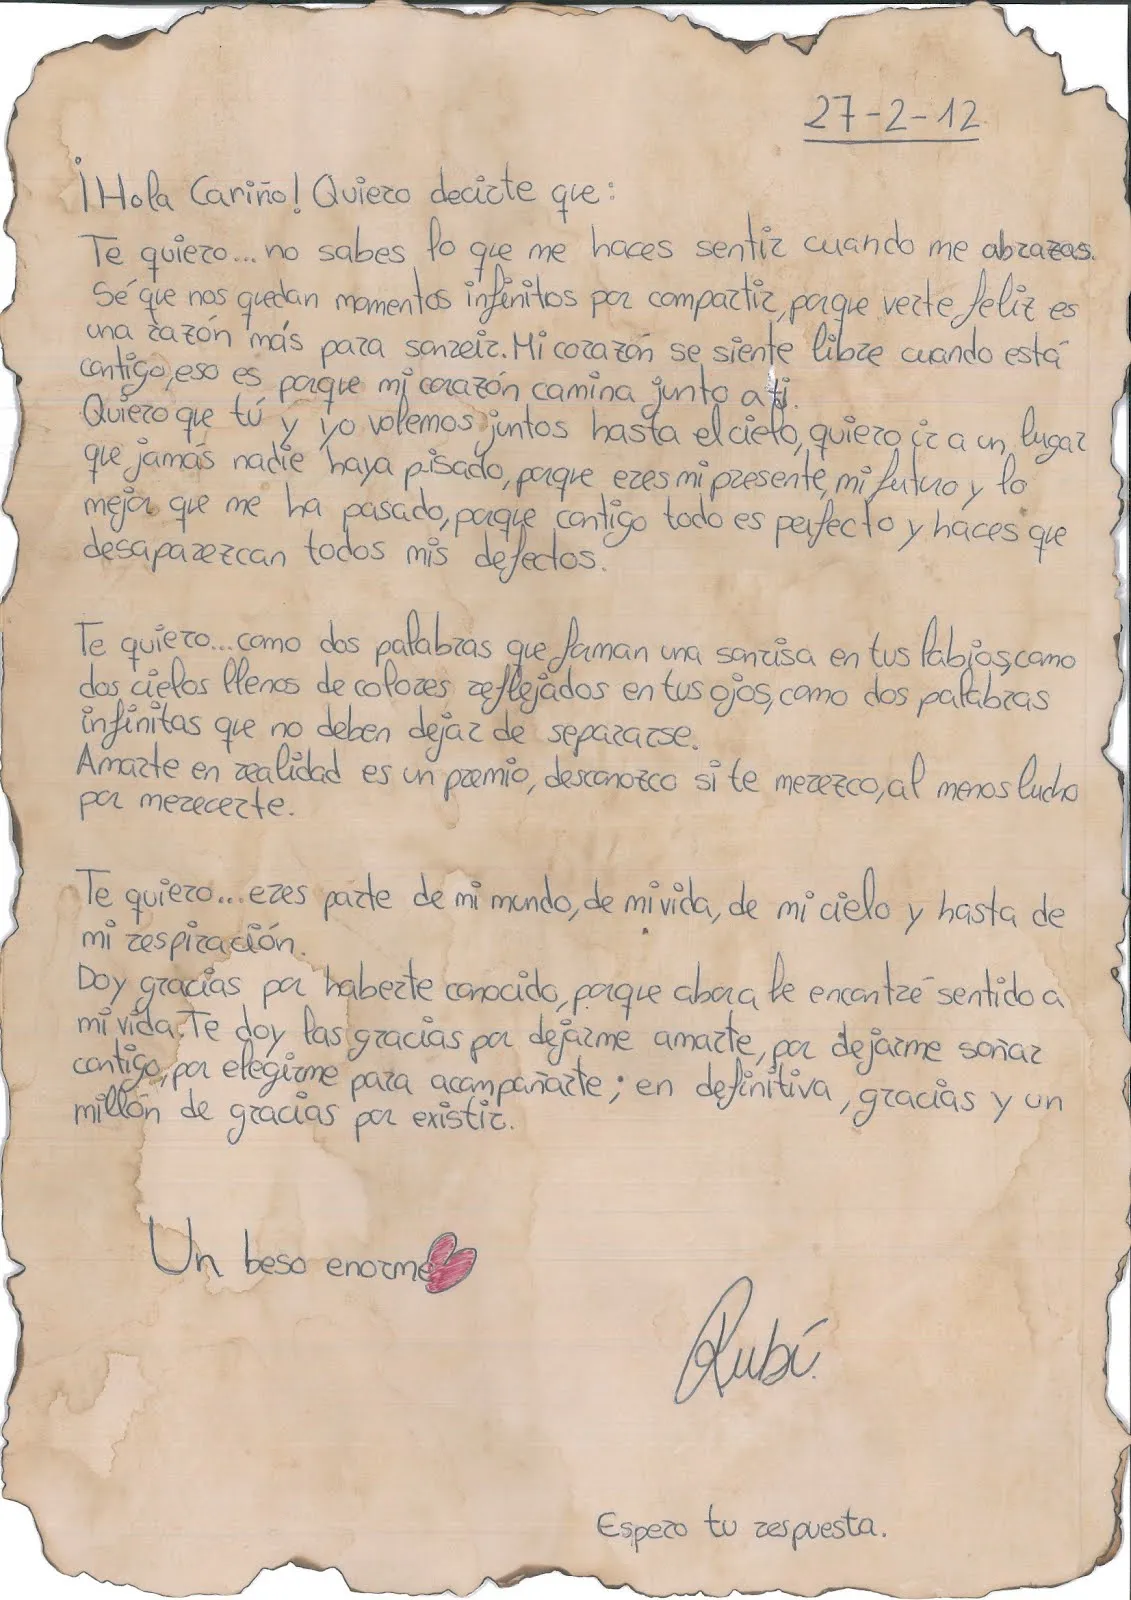 27-2-12
¡Hola Cariño! Quiero decirte que:
Te quiero...no sabes lo que me haces sentir cuando me abrazas.
Sé que nos quedan momentos infinitos por compartir, porque verte feliz es
una razón más para sonreir. Mi corazón se siente libre cuando está
contigo, eso es porque mi corazón camina junto a ti.
Quiero que tú y yo volemos juntos hasta el cielo, quiero ir a un lugar
que jamás nadie haya pisado, porque eres mi presente, mi futuro y lo
mejor que me ha pasado, porque contigo todo es perfecto y haces que
desaparezcan todos mis defectos.
Te quiero...como dos palabras que forman una sonrisa en tus labios, como
dos cielos llenos de colores reflejados en tus ojos, como dos palabras
infinitas que no deben dejar de separarse.
Amarte en realidad es un premio, desconozco si te merezco, al menos lucho
por merecerte.
Te quiero...eres parte de mi mundo, de mi vida, de mi cielo y hasta de
mi respiración.
Doy gracias por haberte conocido, porque ahora le encontré sentido a
mi vida. Te doy las gracias por dejarme amarte, por dejarme soñar
contigo, por elegirme para acompañarte; en definitiva, gracias y un
millón de gracias por existir.
Un beso enorme
Rubí.
Espero tu respuesta.